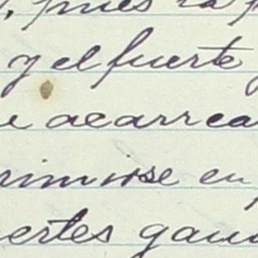 , pues la p
y el fuerte y
e acarrea
rimirse en
ertes gana